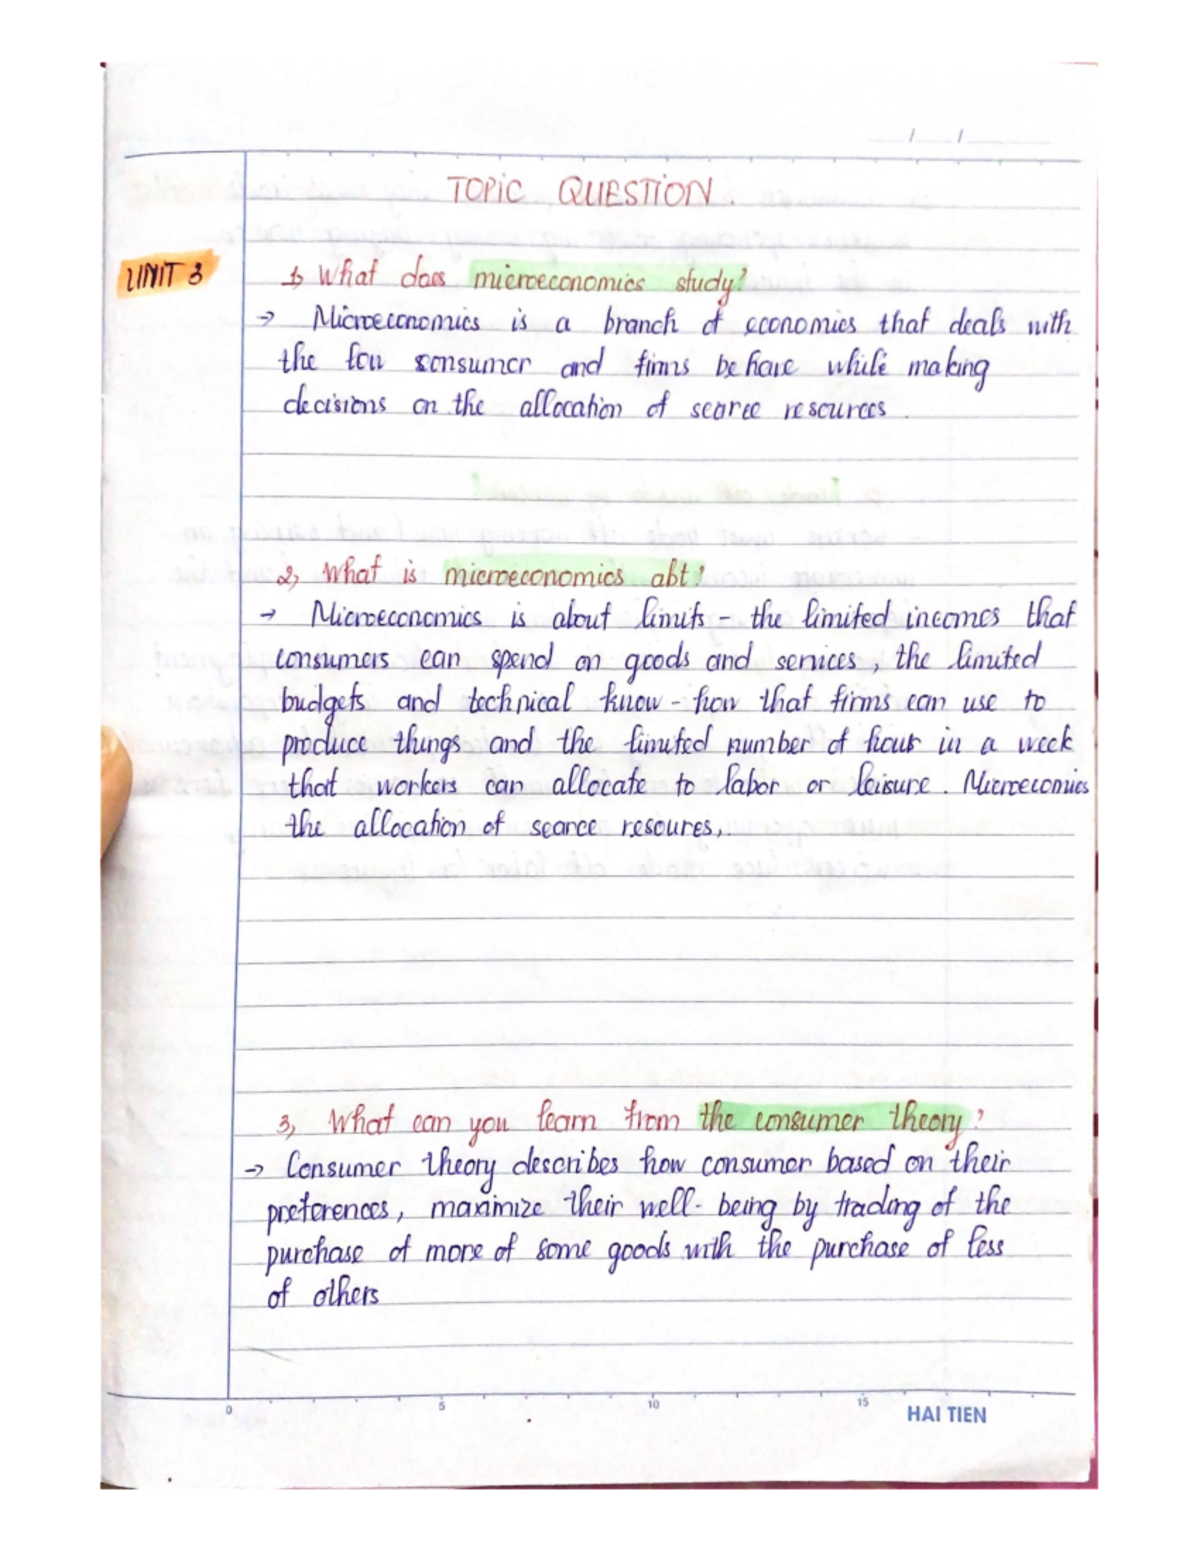 TOPIC QUESTION.
UNIT 3
1, What does microeconomics study?
→ Microeconomics is a branch of economics that deals with
the few consumer and firms behave while making
decisions on the allocation of scarce resources.
2, What is microeconomics abt?
→ Microeconomics is about limits - the limited incomes that
consumers can spend on goods and services, the limited
budgets and technical know-how that firms can use to
produce things and the limited number of hour in a week
that workers can allocate to labor or leisure. Microeconics
the allocation of scarce resoures,.
3, What can you learn from the consumer theory?
→ Consumer theory describes how consumer based on their
preferences, maximize their well-being by trading of the
purchase of more of some goods with the purchase of less
of others
0 5 10 15
HAI TIEN